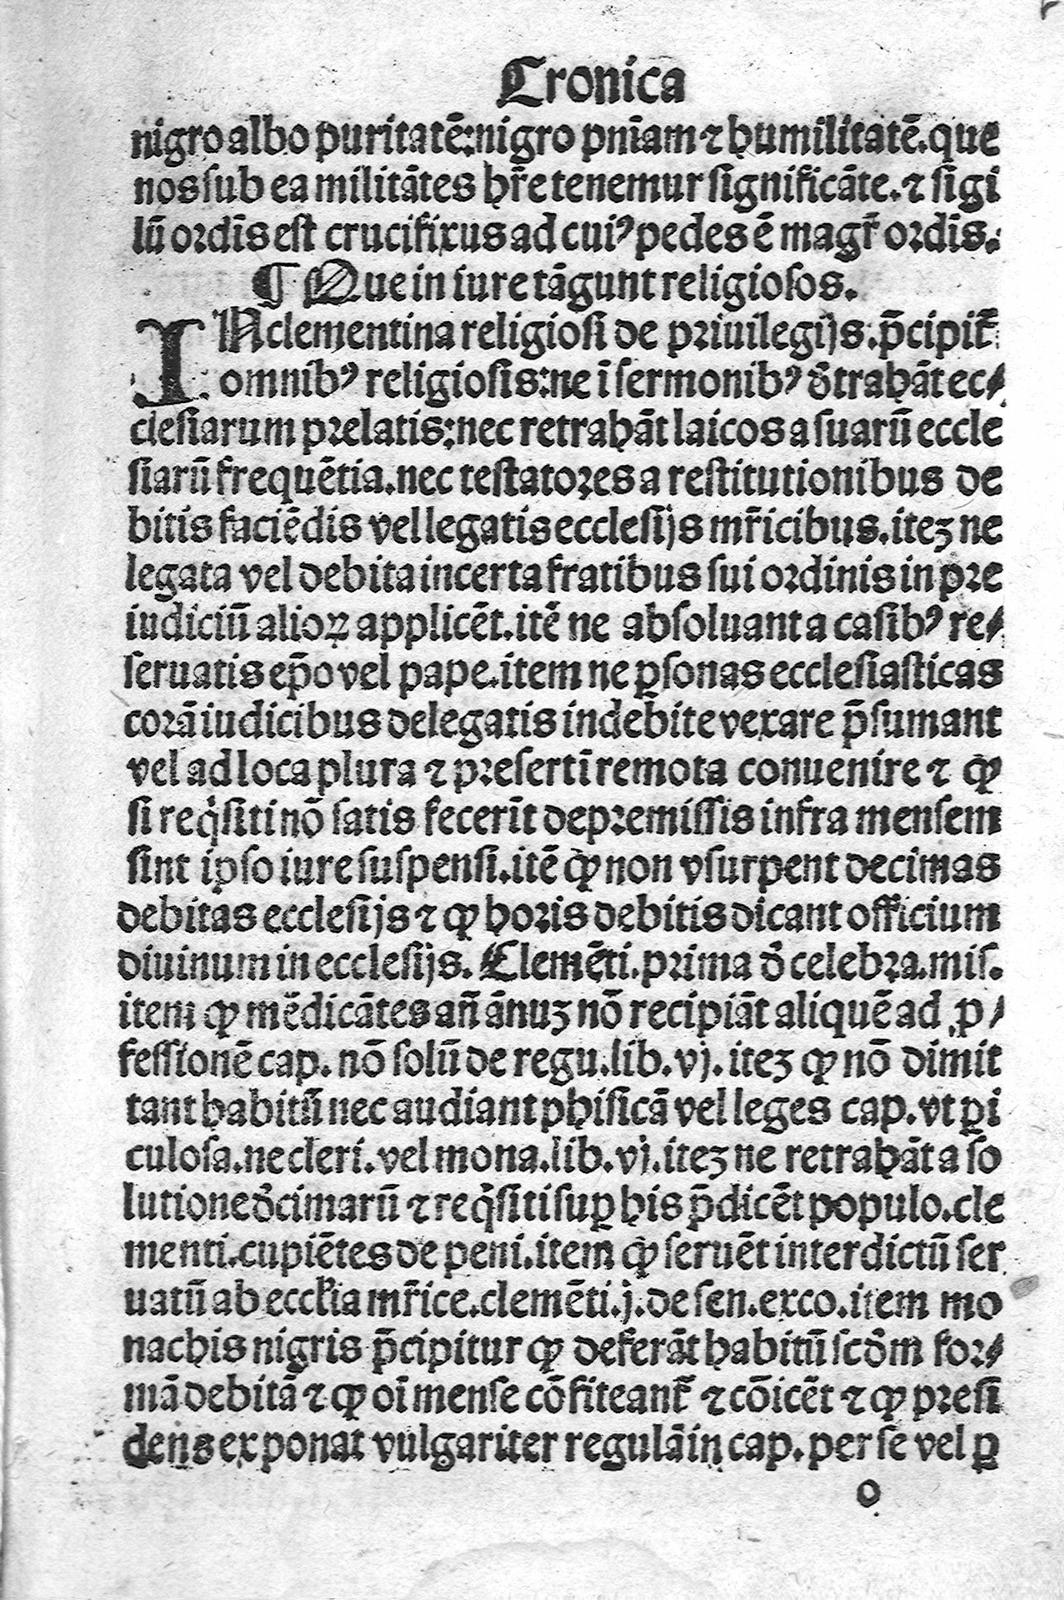 Cronica
nigro albo puritatē:nigro pn̄iam ⁊ humilitatē.que
nos sub ea militātes hr̄e tenemur significāte.⁊ sigi
lū ordīs est crucifixus ad cuiꝰ pedes ē magr̄ ordīs.
¶ Que in iure tāgunt religiosos.
INclementina religiosi de priuilegijs.p̄cipit̄
omnibꝰ religiosis:ne ī sermonibꝰ d̄trahāt ec⸗
clesiarum prelatis:nec retrahāt laicos a suarū eccle
siarū frequētia.nec testatores a restitutionibus de
bitis faciēdis vel legatis ecclesijs mr̄icibus.iteꝫ ne
legata vel debita incerta fratibus sui ordinis in pre
iudiciū alioꝝ applicēt.itē ne absoluant a casibꝰ re⸗
seruatis ep̄o vel pape.item ne ꝑsonas ecclesiasticas
corā iudicibus delegatis indebite vexare p̄sumant
vel ad loca plura ⁊ presertī remota conuenire ⁊ ꝙ
si req̇siti nō satis fecerīt de premissis infra mensem
sint ipso iure suspensi.itē ꝙ non vsurpent decimas
debitas ecclesijs ⁊ ꝙ horis debitis dicant officium
diuinum in ecclesijs. Clemēti.prima d̄ celebra.mis.
item ꝙ mēdicātes añ ānuꝫ nō recipiāt aliquē ad ꝓ⸗
fessionē cap. nō solū de regu.lib.vj.iteꝫ ꝙ nō dimit
tant habitū nec audiant phisicā vel leges cap.vt ꝑi
culosa.ne cleri.vel mona.lib.vj.iteꝫ ne retrahāt a so
lutione d̄cimarū ⁊ req̇siti suꝑ his p̄dicēt populo.cle
menti.cupiētes de peni.item ꝙ seruēt interdictū ser
uatū ab eccl̄ia mr̄ice.clemēti.j.de sen.exco.item mo
nachis nigris p̄cipitur ꝙ deferāt habitū scd̄m for⸗
mā debitā ⁊ ꝙ oī mense cōfiteant̄ ⁊ cōicēt ⁊ ꝙ presi
dens exponat vulgariter regulā in cap.per se vel ꝑ
o